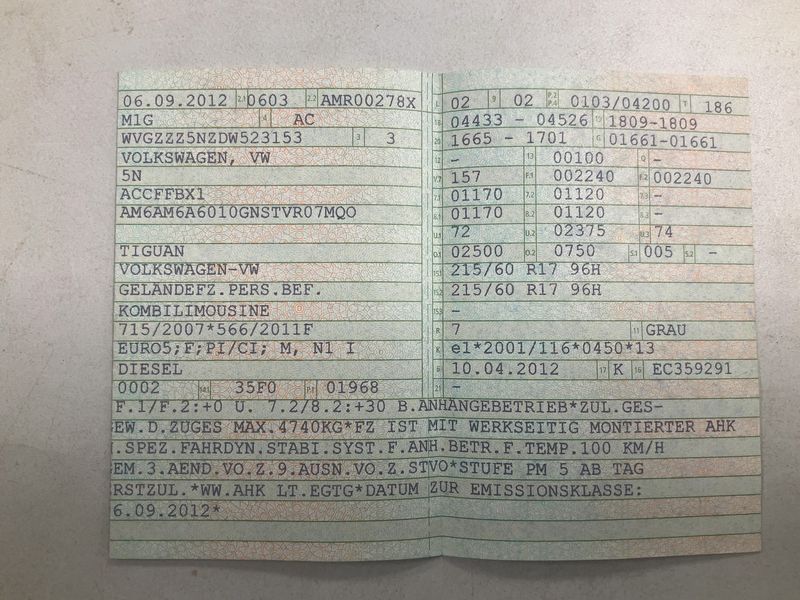 06.09.2012 2.1 0603 2.2 AMR00278X
M1G 4 AC
WVGZZZ5NZDW523153 3 3
VOLKSWAGEN, VW
5N
ACCFFBX1
AM6AM6A6010GNSTVR07MQO
TIGUAN
VOLKSWAGEN-VW
GELÄNDEFZ.PERS.BEF.
KOMBILIMOUSINE
715/2007*566/2011F
EURO5;F;PI/CI; M, N1 I
DIESEL
0002 14.1 35F0 P.1 01968
L 02 9 02 P.2 P.4 0103/04200 T 186
18 04433 - 04526 19 1809-1809
20 1665 - 1701 G 01661-01661
12 - 13 00100 Q -
V.7 157 F.1 002240 F.2 002240
7.1 01170 7.2 01120 7.3 -
8.1 01170 8.2 01120 8.3 -
U.1 72 U.2 02375 U.3 74
O.1 02500 O.2 0750 S.1 005 S.2 -
15.1 215/60 R17 96H
15.2 215/60 R17 96H
15.3 -
R 7 11 GRAU
K e1*2001/116*0450*13
6 10.04.2012 17 K 16 EC359291
21 -
F.1/F.2:+0 U. 7.2/8.2:+30 B.ANHÄNGEBETRIEB*ZUL.GES-
EW.D.ZUGES MAX.4740KG*FZ IST MIT WERKSEITIG MONTIERTER AHK
.SPEZ.FAHRDYN.STABI.SYST.F.ANH.BETR.F.TEMP.100 KM/H
EM.3.AEND.VO.Z.9.AUSN.VO.Z.STVO*STUFE PM 5 AB TAG
RSTZUL.*WW.AHK LT.EGTG*DATUM ZUR EMISSIONSKLASSE:
6.09.2012*